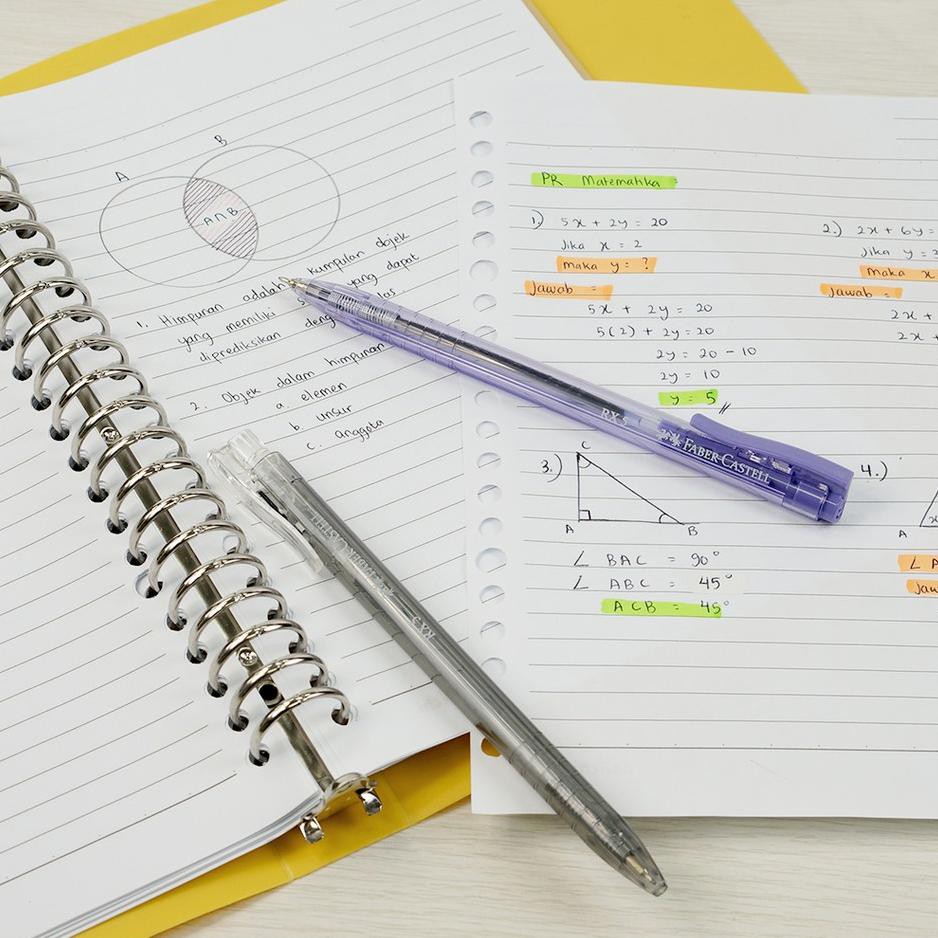 A
B
A∩B
1. Himpunan adalah kumpulan objek
yang memiliki yang dapat
diprediksikan
2. Objek dalam himpunan
a. elemen
b. unsur
c. anggota
PR Matematika
1.) 5x + 2y = 20
Jika x = 2
maka y = ?
Jawab =
5x + 2y = 20
5(2) + 2y = 20
2y = 20 - 10
2y = 10
y = 5 //
2.) 2x + 6y =
Jika y =
maka x
Jawab =
2x +
2x +
3.)
C
A
B
∠ BAC = 90°
∠ ABC = 45°
ACB = 45°
4.)
A
∠ A
Jaw
RX 5 FABER-CASTELL
RX 5 FABER-CASTELL